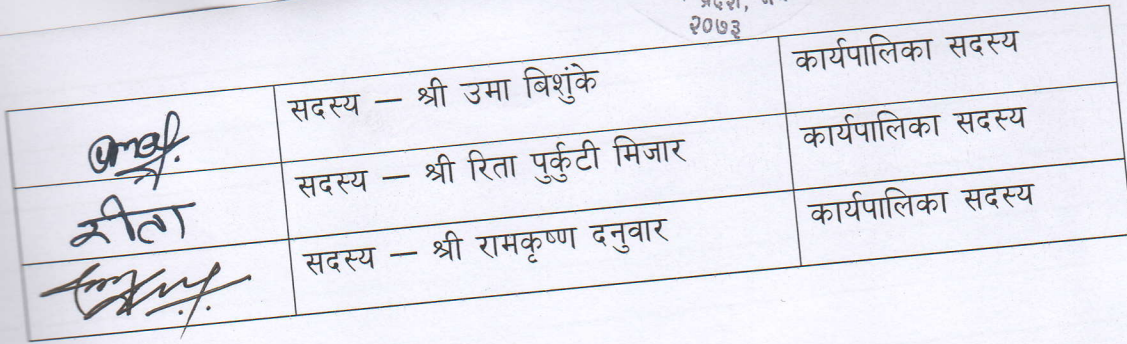 प्रदेश,
२०७३
सदस्य – श्री उमा बिशुंके कार्यपालिका सदस्य
रीता सदस्य – श्री रिता पुर्कुटी मिजार कार्यपालिका सदस्य
सदस्य – श्री रामकृष्ण दनुवार कार्यपालिका सदस्य